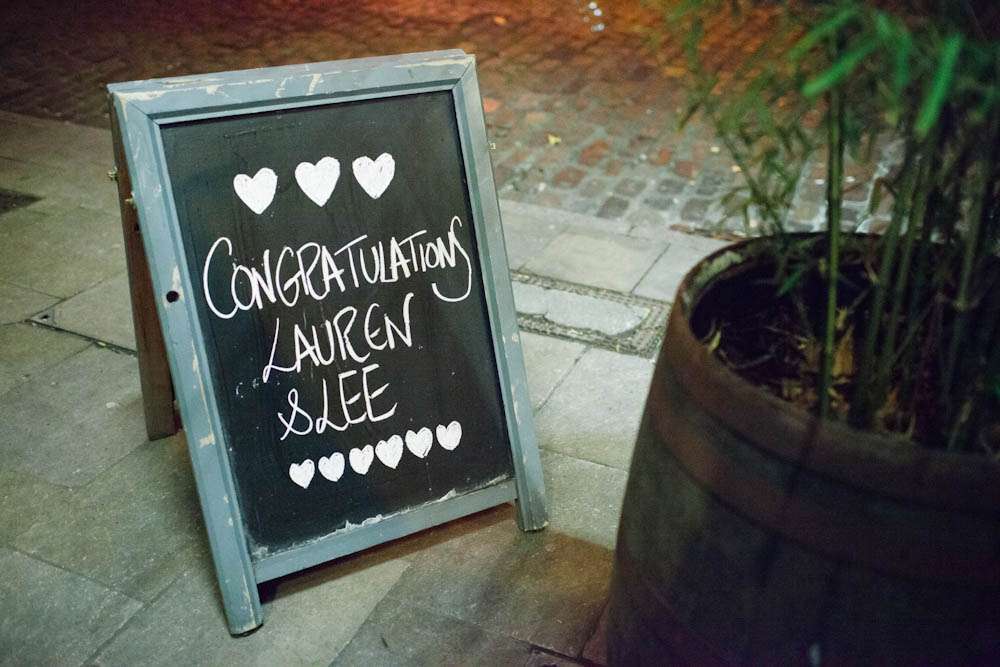 CONGRATULATIONS
LAUREN
& LEE